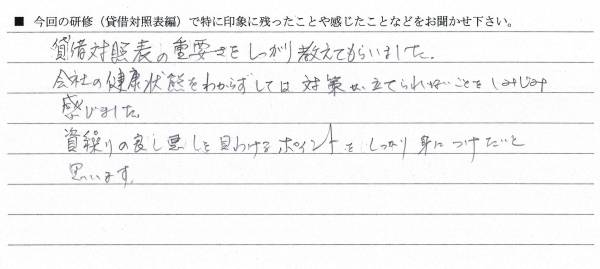 ■ 今回の研修（貸借対照表編）で特に印象に残ったことや感じたことなどをお聞かせ下さい。
貸借対照表の重要さをしっかり教えてもらいました。
会社の健康状態をわからずしては対策が立てられないことをしみじみ
感じました。
資繰りの良し悪しを見わけるポイントをしっかり身につけたいと
思います。